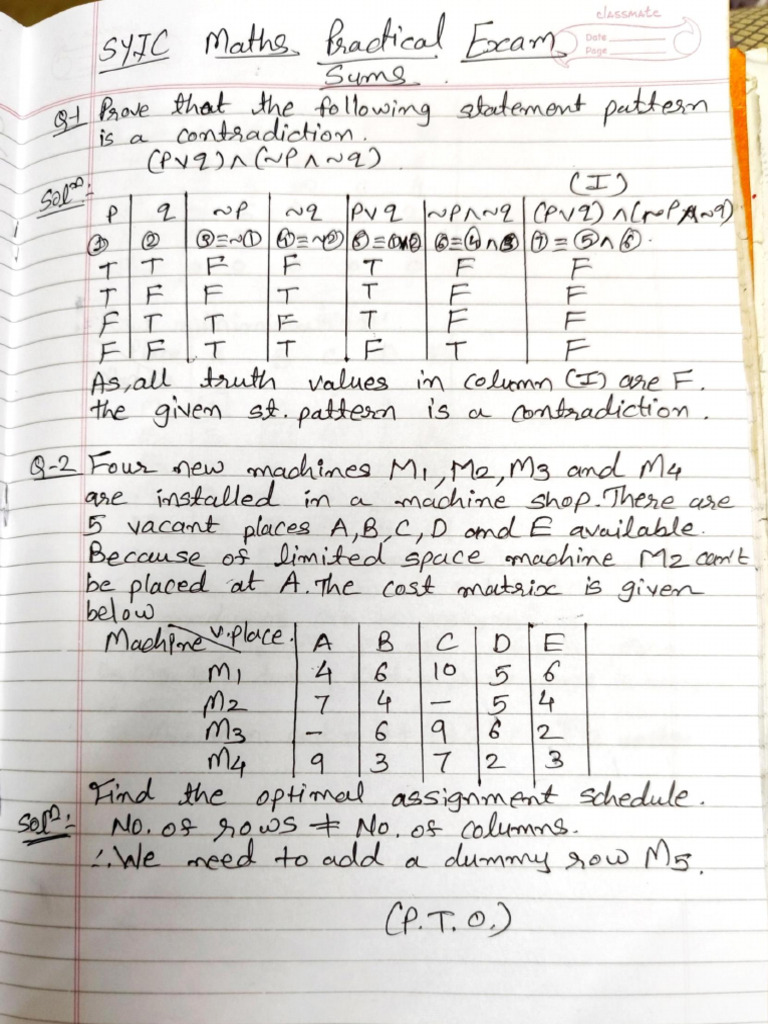 classmate
Date
Page
SYJC Maths Practical Exam
Sums
Q-1 Prove that the following statement pattern
is a contradiction.
(P∨q)∧(~P∧~q)
Solⁿ:-
(I)
P | q | ~P | ~q | P∨q | ~P∧~q | (P∨q)∧(~P∧~q)
① | ② | ③≡~① | ④≡~② | ⑤≡①∨② | ⑥≡④∧③ | ⑦≡⑤∧⑥.
T | T | F | F | T | F | F
T | F | F | T | T | F | F
F | T | T | F | T | F | F
F | F | T | T | F | T | F
As, all truth values in column (I) are F.
the given st. pattern is a contradiction.
Q-2 Four new machines M1, M2, M3 and M4
are installed in a machine shop. There are
5 vacant places A, B, C, D and E available.
Because of limited space machine M2 can't
be placed at A. The cost matrix is given
below
Machine V.place. | A | B | C | D | E
M1 | 4 | 6 | 10 | 5 | 6
M2 | 7 | 4 | - | 5 | 4
M3 | - | 6 | 9 | 6 | 2
M4 | 9 | 3 | 7 | 2 | 3
Find the optimal assignment schedule.
Solⁿ:- No. of rows ≠ No. of columns.
∴We need to add a dummy row M5.
(P.T.O.)